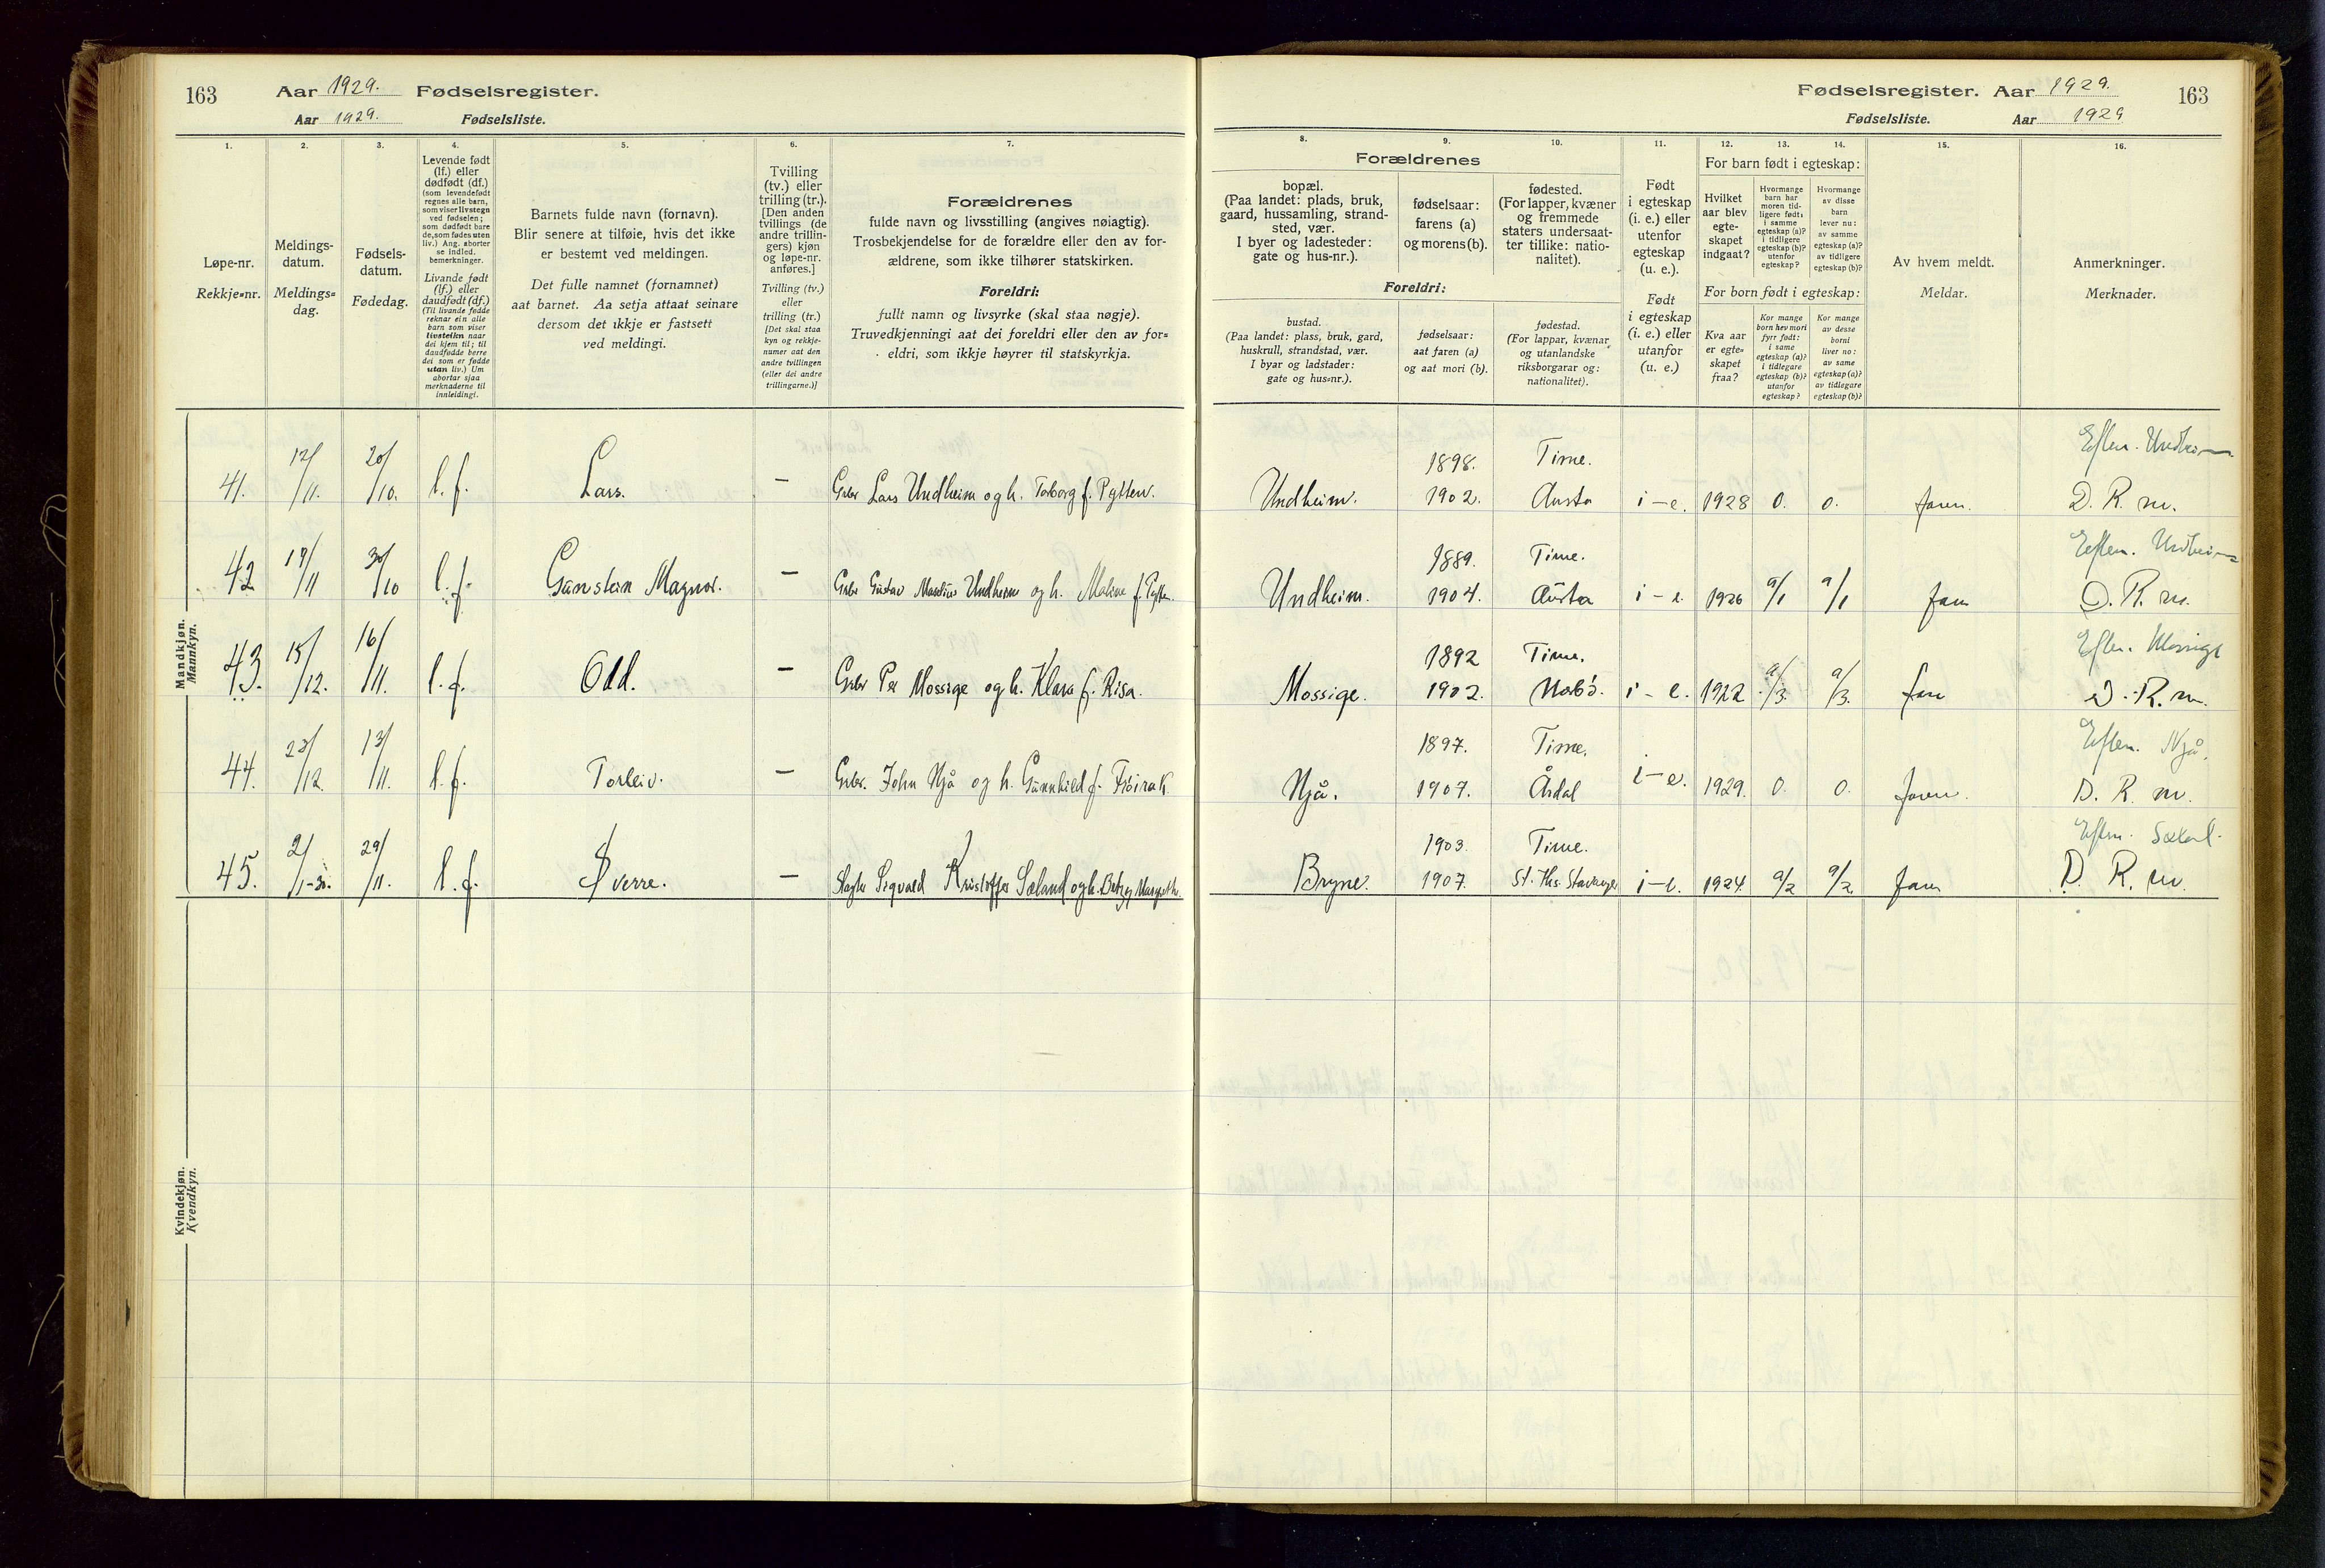 163 Aar 1929. Fødselsregister.
Aar 1929. Fødselsliste.
Fødselsregister. Aar 1929. 163
Fødselsliste. Aar 1929
1. 2. 3. 4. 5. 6. 7.
Løpe-nr.
Rekkje-nr.
Meldings-
datum.
Meldings-
dag.
Fødsels-
datum.
Fødedag.
Levende født
(lf.) eller
dødfødt (df.)
(som levendefødt
regnes alle barn,
som viser livstegn
ved fødselen;
som dødfødt bare
de, som fødes uten
liv.) Ang. aborter
se indled.
bemerkninger.
Livande født
(lf.) eller
daudfødt (df.)
(Til livande fødde
reknar ein alle
barn som viser
livsteikn naar
dei kjem til; til
daudfødde berre
dei som er fødde
utan liv.) Um
abortar sjaa
merknaderne til
innleidingi.
Barnets fulde navn (fornavn).
Blir senere at tilføie, hvis det ikke
er bestemt ved meldingen.
Det fulle namnet (fornamnet)
aat barnet. Aa setja attaat seinare
dersom det ikkje er fastsett
ved meldingi.
Tvilling
(tv.) eller
trilling (tr.).
[Den anden
tvillings (de
andre trillin-
gers) kjøn
og løpe-nr.
anføres.]
Tvilling (tv.)
eller
trilling (tr.)
[Det skal staa
kyn og rekkje-
numer aat den
andre tvillingen
(eller dei andre
trillingarne.)]
Forældrenes
fulde navn og livsstilling (angives nøiagtig).
Trosbekjendelse for de forældre eller den av for-
ældrene, som ikke tilhører statskirken.
Foreldri:
fullt namn og livsyrke (skal staa nøgje).
Truvedkjenningi aat dei foreldri eller den av for-
eldri, som ikkje høyrer til statskyrkja.
8. 9. 10. 11. 12. 13. 14. 15. 16.
Forældrenes
bopæl.
(Paa landet: plads, bruk,
gaard, hussamling, strand-
sted, vær.
I byer og ladesteder:
gate og hus-nr.).
fødselsaar:
farens (a)
og morens (b).
fødested.
(For lapper, kvæner
og fremmede
staters undersaat-
ter tillike: natio-
nalitet).
Foreldri:
bustad.
(Paa landet: plass, bruk, gard,
huskrull, strandstad, vær.
I byar og ladstader:
gate og hus-nr.).
fødselsaar:
aat faren (a)
og aat mori (b).
fødestad.
(For lappar, kvænar
og utanlandske
riksborgarar og:
nationalitet).
Født
i egteskap
(i. e.) eller
utenfor
egteskap
(u. e.).
Født
i egteskap
(i. e.) eller
utanfor
egteskap
(u. e.)
For barn født i egteskap:
Hvilket
aar blev
egte-
skapet
indgaat?
Hvormange
barn har
moren tid-
ligere født:
i samme
egteskap (a)?
i tidligere
egteskap (b)?
utenfor
egteskap?
Hvormange
av disse
barn
lever nu:
av samme
egteskap (a)?
av tidligere
egteskap (b)?
For born født i egteskap:
Kva aar
er egte-
skapet
fraa?
Kor mange
born hev mori
fyrr født:
i same
egteskap (a)?
i tidlegare
egteskap (b)?
utanfor
egteskap?
Kor mange
av desse
borni
liver no:
av same
egteskap (a)?
av tidlegare
egteskap (b)?
Av hvem meldt.
Meldar.
Anmerkninger.
Merknader.
Mandkjøn.
Mannkyn.
41. 12/11. 20/10. l. f. Lars. — Grbr Lars Undheim og h. Torborg f.
Undheim. 1898. 1902. Time. i – e. 1928 0. 0. faren. D. R. m.
42 19/11 30/10 l. f. Gunstein Magnor. — Grbr Gustav Undheim og h. Malene f.
Undheim. 1889. 1904. Time. i – e. 1926 a/1 a/1 D. R. m.
43. 15/12. 16/11. l. f. Odd. — Grbr Per Mossige og h. Klara f. Risa.
Mossige. 1892 1902. Time. i – e. 1922 a/3. a/3. D. R. m.
44. 23/12. 13/11. l. f. Torleiv. — Grbr. John Njå og h. Gunnhild f.
Njå. 1897. 1907. Time. Årdal i – e. 1929. 0. 0. faren. Eften. Njå. D. R. m.
45. 2/1-30. 29/11. l. f. Sverre. — Sigvald Kristoffer Sæland og h.
Bryne. 1903. 1907. Time. i – e. 1924 a/2 a/2. D. R. m.
Kvindekjøn.
Kvendkyn.